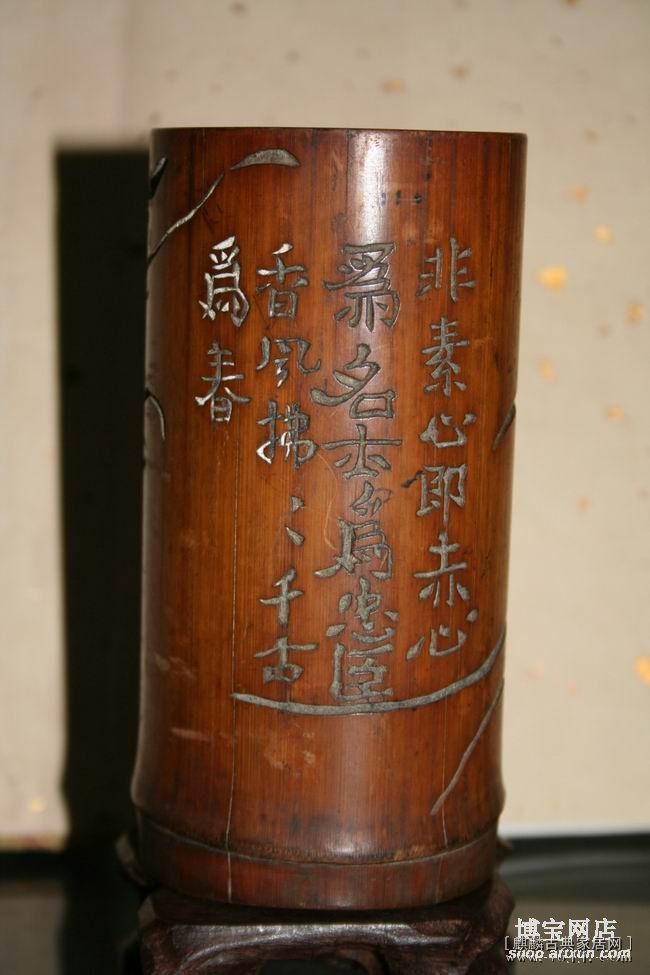 非素心即赤心
爲名士爲忠臣
香風拂〻千古
爲春
博宝网店
[麒麟古典家居网]
shop.artxun.com